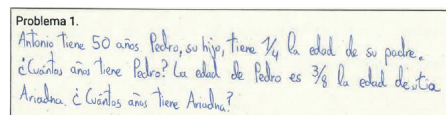 Problema 1.
Antonio tiene 50 años. Pedro, su hijo, tiene 1/4 la edad de su padre.
¿Cuántos años tiene Pedro? La edad de Pedro es 3/8 la edad de tía
Ariadna. ¿Cuántos años tiene Ariadna?